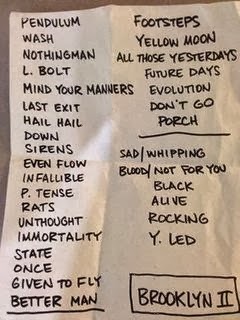 PENDULUM
WASH
NOTHINGMAN
L. BOLT
MIND YOUR MANNERS
LAST EXIT
HAIL HAIL
DOWN
SIRENS
EVEN FLOW
INFALLIBLE
P. TENSE
RATS
UNTHOUGHT
IMMORTALITY
STATE
ONCE
GIVEN TO FLY
BETTER MAN
FOOTSTEPS
YELLOW MOON
ALL THOSE YESTERDAYS
FUTURE DAYS
EVOLUTION
DON'T GO
PORCH
SAD/WHIPPING
BLOOD/NOT FOR YOU
BLACK
ALIVE
ROCKING
Y. LED
BROOKLYN II